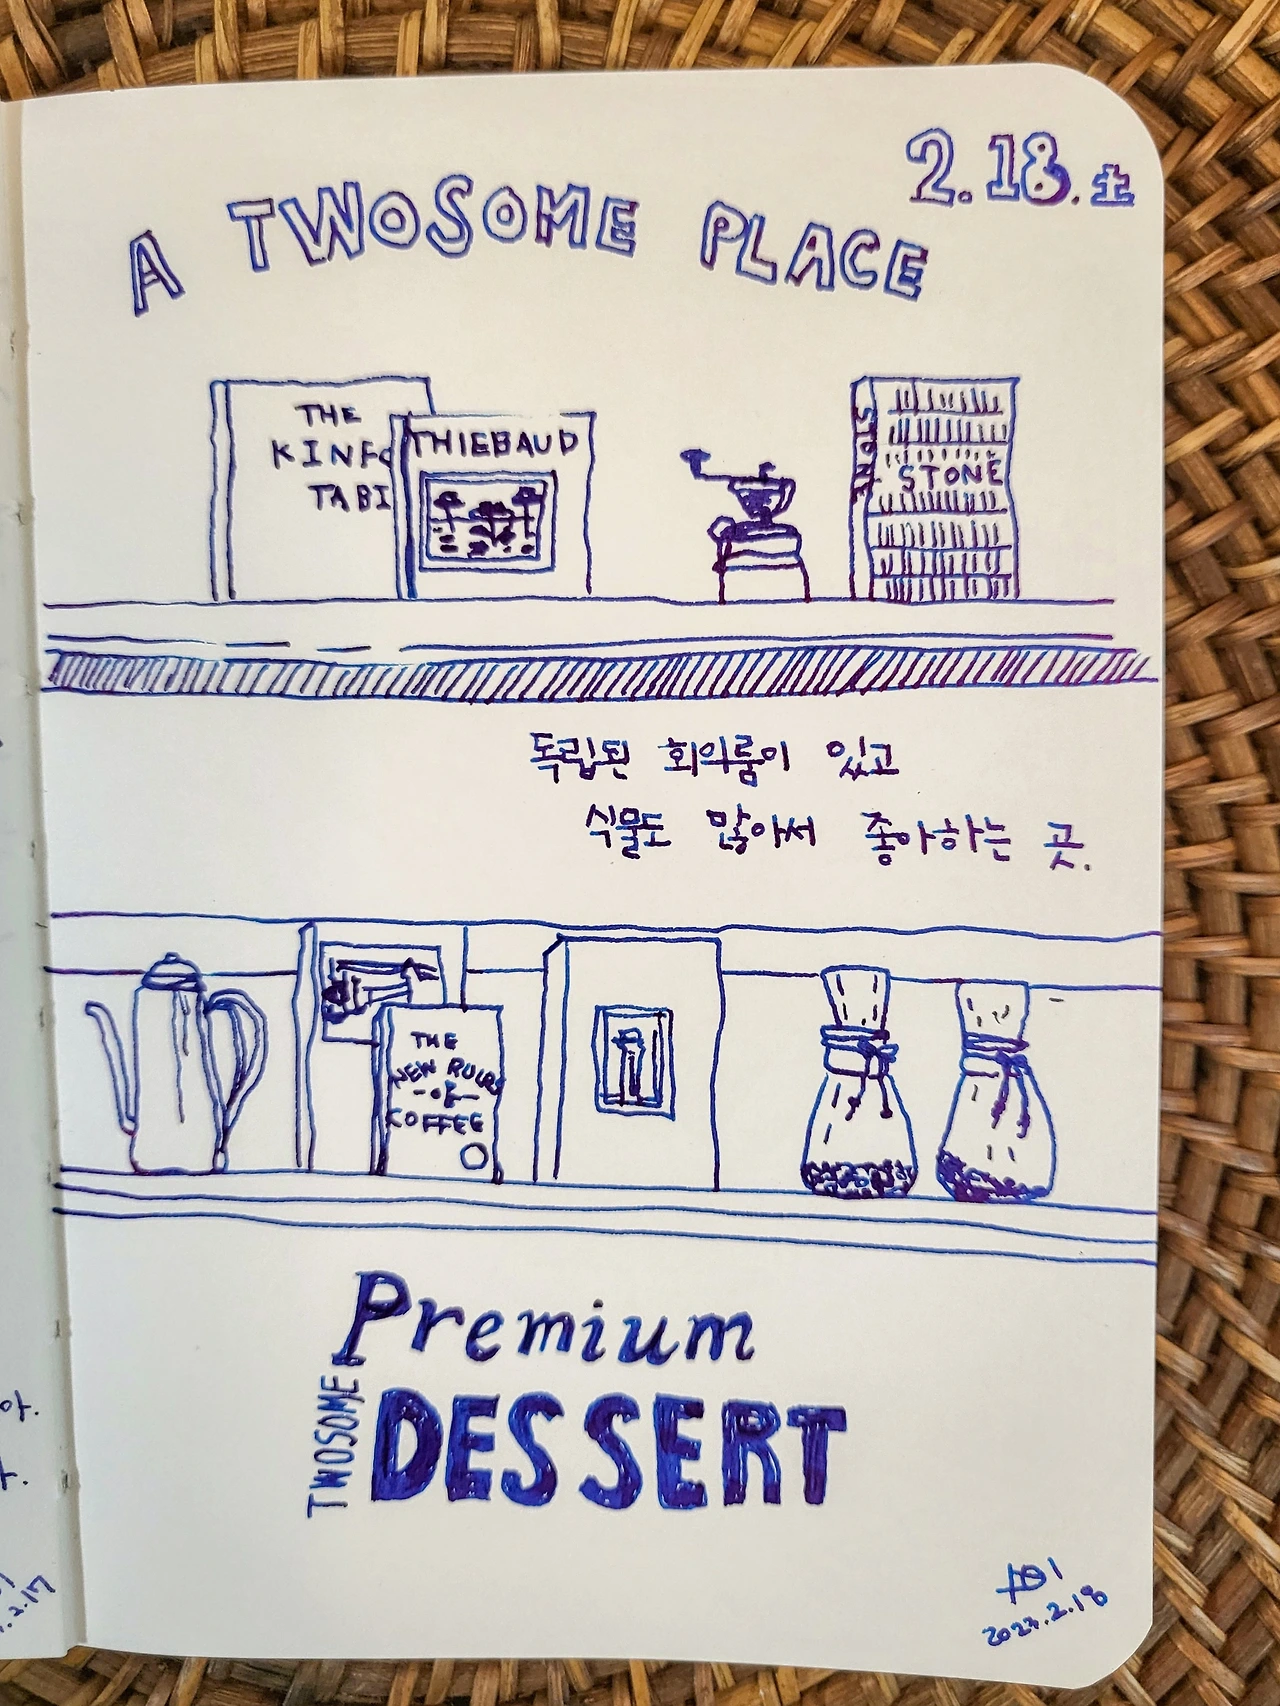 2.18.土
A TWOSOME PLACE
THE
KINFO
TABI
THIEBAUD
STONE
STONE
독립된 회의룸이 있고
식물도 많아서 좋아하는 곳.
THE
NEW RULES
OF
COFFEE
Premium
TWOSOME
DESSERT
2023.2.18
아.
2.17